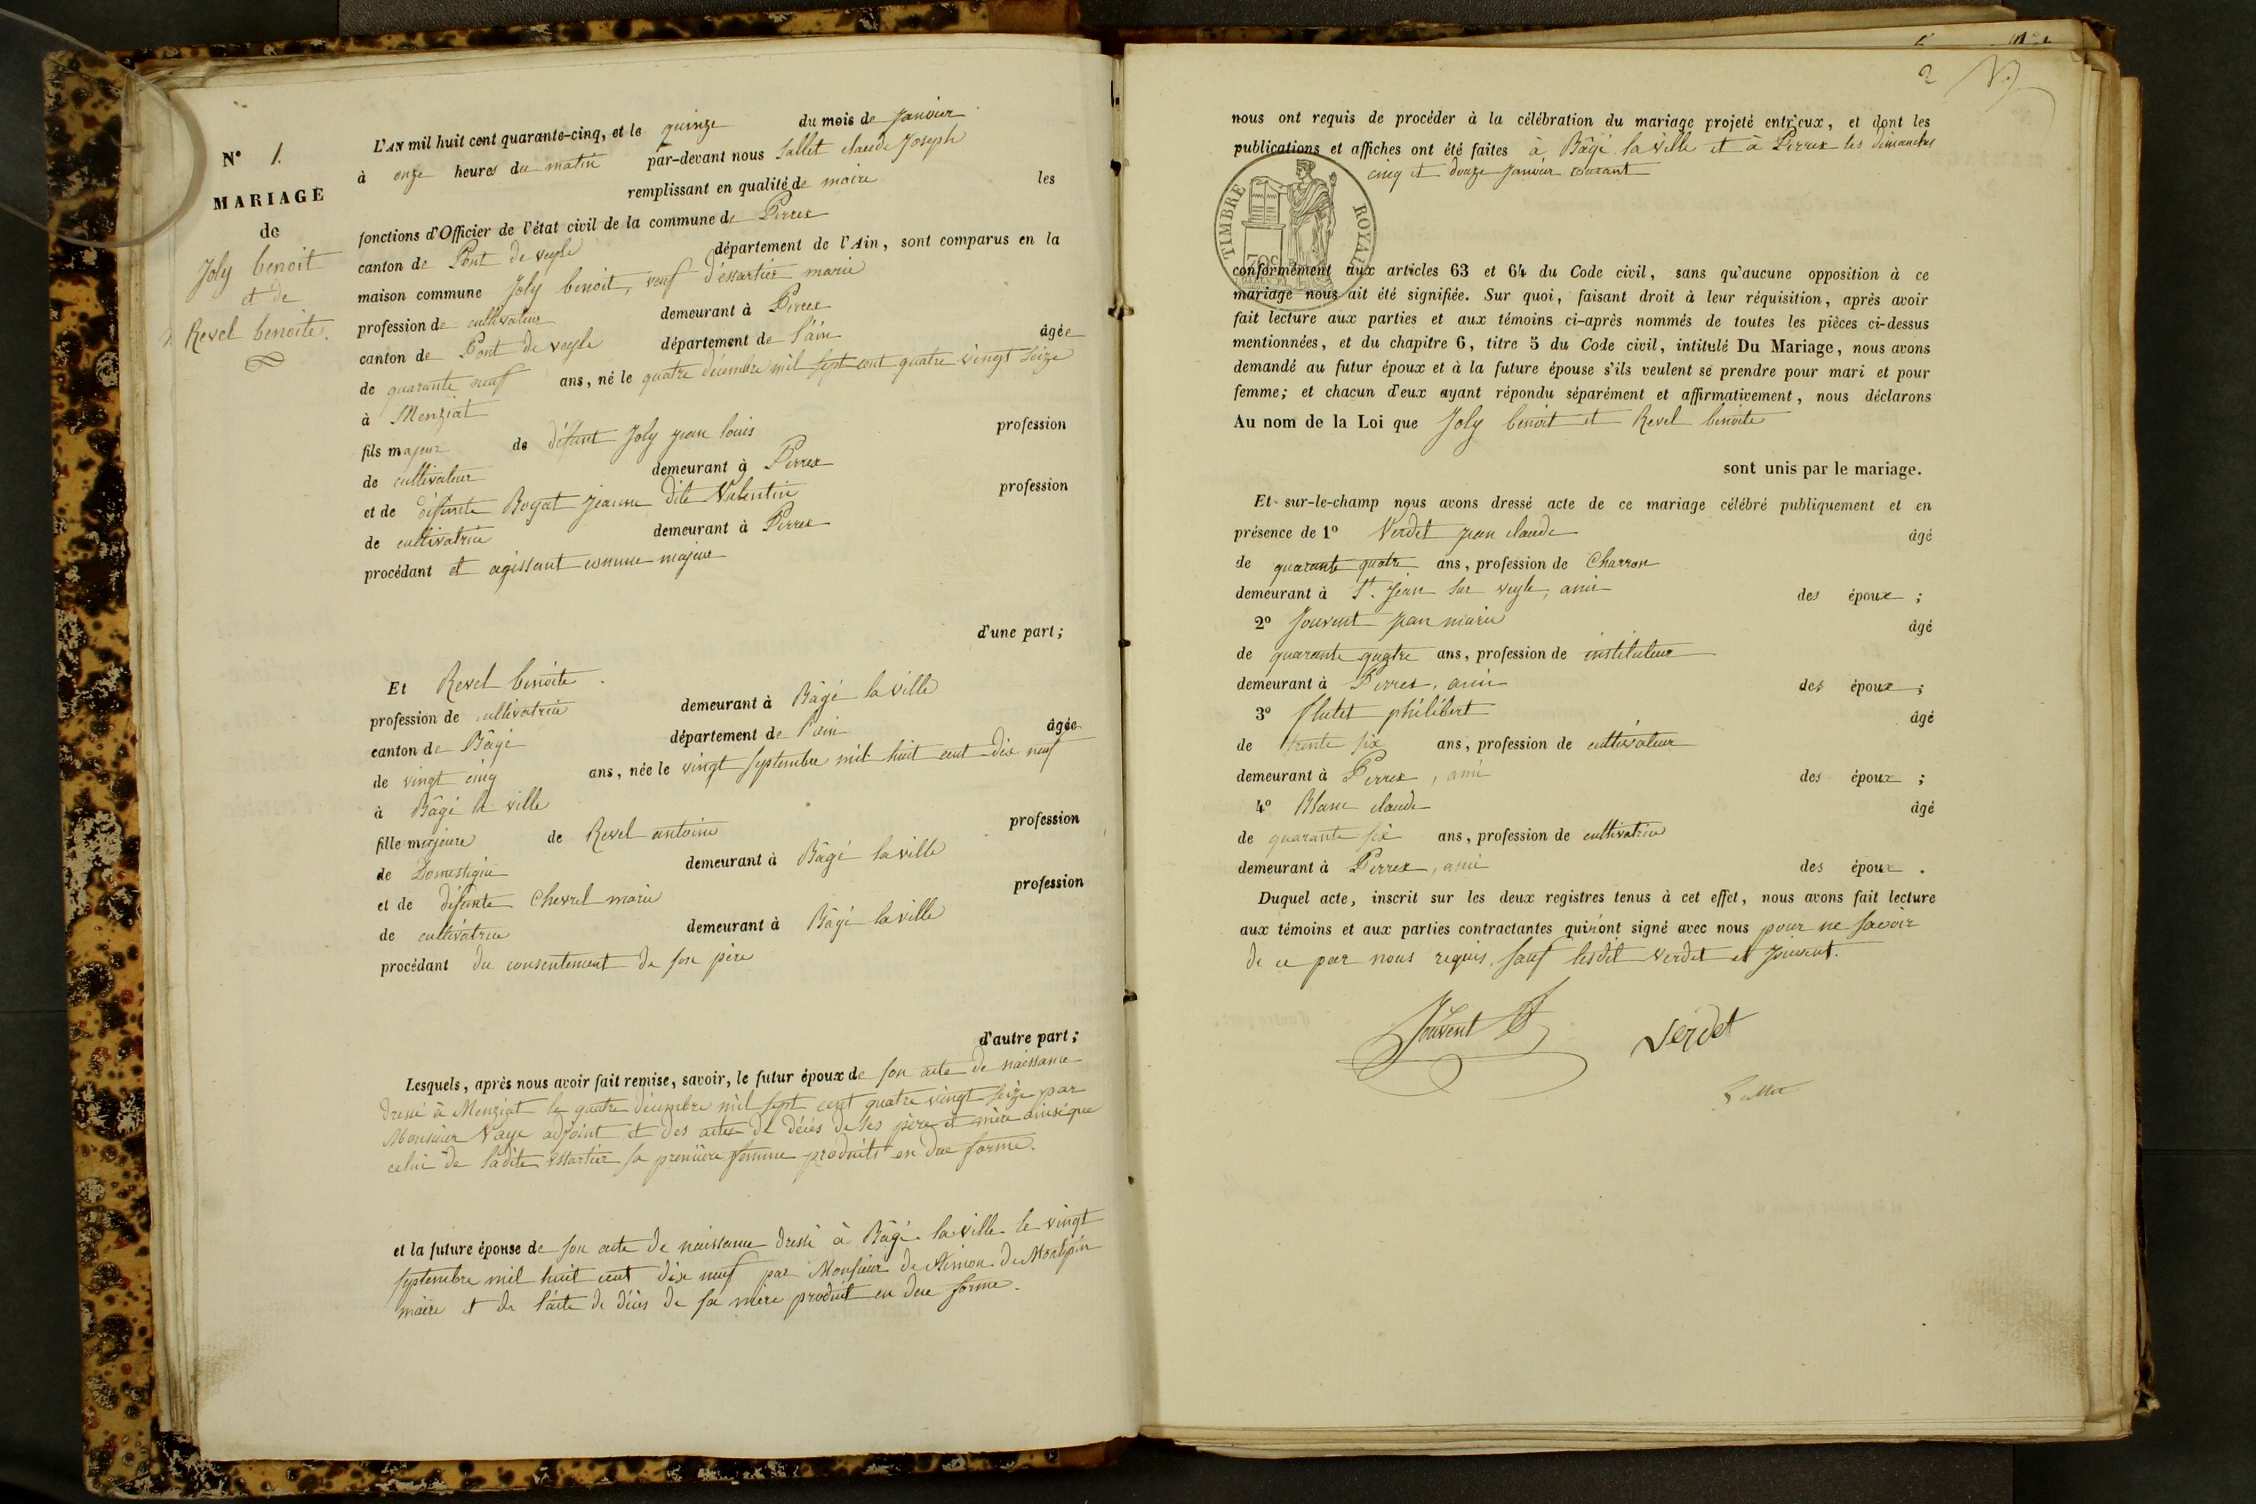 N° 1.
MARIAGE
de
Joly benoit
et de
Revel benoite.
L'AN mil huit cent quarante-cinq, et le quinze du mois de Janvier
à onze heures du matin par-devant nous Sallet claude Joseph
remplissant en qualité de maire les
fonctions d'Officier de l'état civil de la commune de Perrex
canton de Pont de veyle département de l'Ain, sont comparus en la
maison commune Joly benoit, veuf d'essartier marie
profession de cultivateur demeurant à Perrex
canton de Pont de veyle département de l'ain âgée
de quarante neuf ans, né le quatre décembre mil sept cent quatre vingt seize
à Menziat
fils majeur de défunt Joly jean louis profession
de cultivateur demeurant à Perrex
et de défunte Boyat jeanne dite Valentin profession
de cultivatrice demeurant à Perrex
procédant et agissant comme majeur
d'une part;
Et Revel benoite
profession de cultivatrice demeurant à Bâgé la ville
canton de Bâgé département de l'ain âgée
de vingt cinq ans, née le vingt septembre mil huit cent dix neuf
à Bâgé la ville
fille majeure de Revel antoine profession
de Domestique demeurant à Bâgé la ville
et de défunte Chevrel marie profession
de cultivatrice demeurant à Bâgé la ville
procédant du consentement de son père
d'autre part;
Lesquels, après nous avoir fait remise, savoir, le futur époux de son acte de naissance
dressé à Menziat le quatre décembre mil sept cent quatre vingt seize par
Monsieur Vaye adjoint et des actes de décès de ses père et mère ainsi que
celui de ladite essartier sa première femme produits en due forme.
et la future épouse de son acte de naissance dressé à Bâgé la ville le vingt
septembre mil huit cent dix neuf par Monsieur de Aimon de Montepin
maire et de l'acte de décès de sa mère produit en due forme.
2
nous ont requis de procéder à la célébration du mariage projeté entr'eux, et dont les
publications et affiches ont été faites à Bâgé la ville et à Perrex les dimanches
cinq et douze Janvier courant
TIMBRE ROYAL
conformément aux articles 63 et 64 du Code civil, sans qu'aucune opposition à ce
mariage nous ait été signifiée. Sur quoi, faisant droit à leur réquisition, après avoir
fait lecture aux parties et aux témoins ci-après nommés de toutes les pièces ci-dessus
mentionnées, et du chapitre 6, titre 5 du Code civil, intitulé Du Mariage, nous avons
demandé au futur époux et à la future épouse s'ils veulent se prendre pour mari et pour
femme; et chacun d'eux ayant répondu séparément et affirmativement, nous déclarons
Au nom de la Loi que Joly benoit et Revel benoite
sont unis par le mariage.
Et sur-le-champ nous avons dressé acte de ce mariage célébré publiquement et en
présence de 1° Verdet jean claude âgé
de quarante quatre ans, profession de Charron
demeurant à St. Jean sur veyle, ami des époux;
2° Jouvent jean marie âgé
de quarante quatre ans, profession de instituteur
demeurant à Perrex, ami des époux;
3° flutet philibert âgé
de trente six ans, profession de cultivateur
demeurant à Perrex, ami des époux;
4° Blanc claude âgé
de quarante six ans, profession de cultivatrice
demeurant à Perrex, ami des époux.
Duquel acte, inscrit sur les deux registres tenus à cet effet, nous avons fait lecture
aux témoins et aux parties contractantes qui n'ont signé avec nous pour ne savoir
de ce par nous requis, sauf lesdit Verdet et Jouvent.
Jouvent Verdet